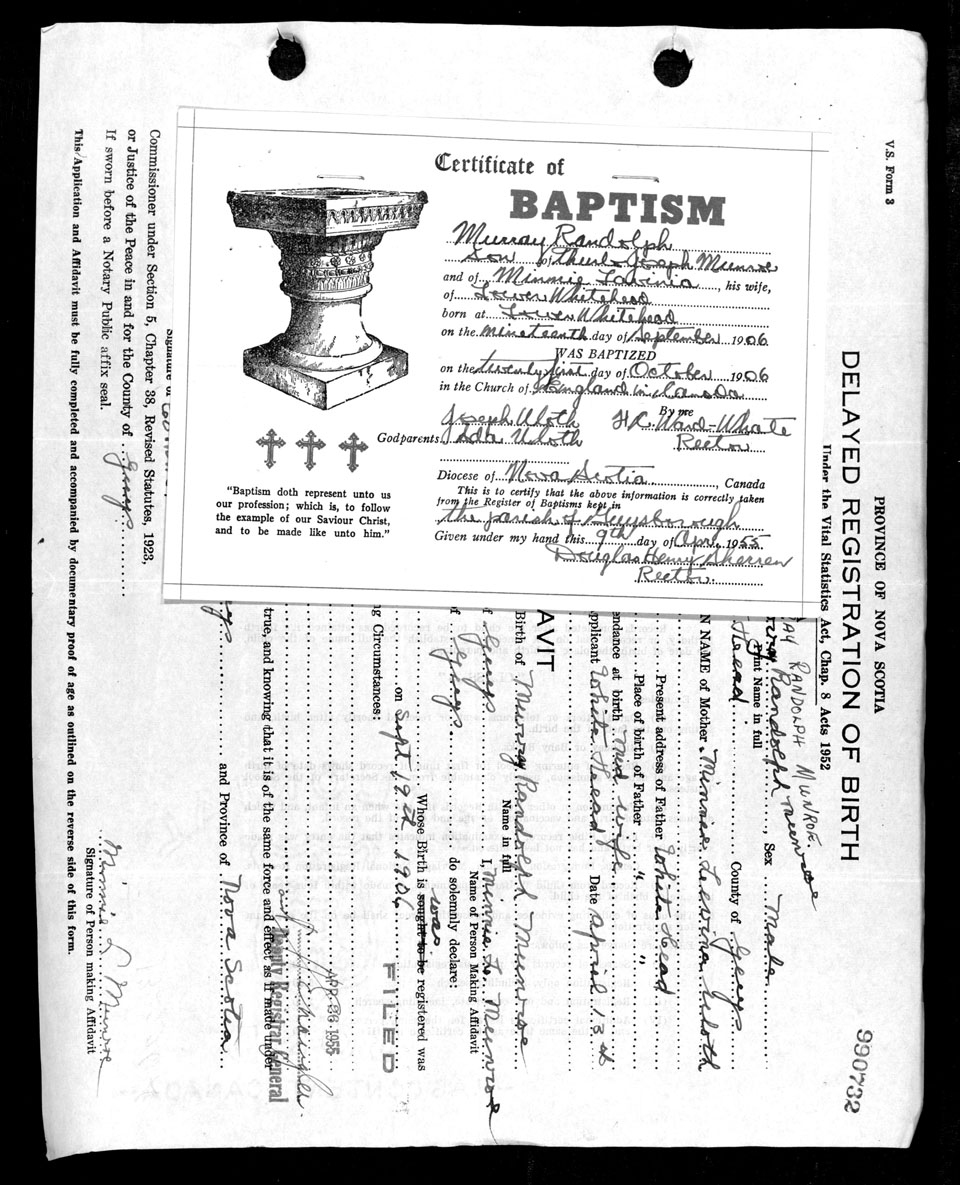 Certificate of
BAPTISM
Murray Randolph
Son of Thurlo Joseph Munroe
and of Minnie Lavinia, his wife,
of Lower Whitehead
born at Lower Whitehead
on the nineteenth day of September 1906
WAS BAPTIZED
on the twenty first day of October 1906
in the Church of England in Canada
By me
Joseph Uloth H.C. Ward-Whate
Godparents Ida Uloth Rector
Diocese of Nova Scotia, Canada
This is to certify that the above information is correctly taken
from the Register of Baptisms kept in
the parish of Guysborough
Given under my hand this 9th day of Apr. 1955
Douglas Henry
Rector.
"Baptism doth represent unto us
our profession; which is, to follow
the example of our Saviour Christ,
and to be made like unto him."
V.S. Form 3
PROVINCE OF NOVA SCOTIA
DELAYED REGISTRATION OF BIRTH
990732
Under the Vital Statistics Act, Chap. 8 Acts 1952
RANDOLPH MUNROE
Randolph Munroe, Sex Male
Print Name in full
Head County of Guys
N NAME of Mother Minnie Levina Uloth
Present address of Father White Head
Place of birth of Father " "
endance at birth Mid wife
pplicant White Head Date April 13 at
AVIT
I, Minnie L. Munroe
Name of Person Making Affidavit
Birth of Murray Randolph Munroe
Name in full
f Guys do solemnly declare:
f Guys Whose Birth is sought to be registered was
was
on Sept. 19th 1906
g Circumstances:
FILED
APR 26 1955
Deputy Registrar General
true, and knowing that it is of the same force and effect as if made under
ys and Province of Nova Scotia
Signature of
Commissioner under Section 5, Chapter 38, Revised Statutes, 1923,
or Justice of the Peace in and for the County of Guys
If sworn before a Notary Public affix seal.
Minnie L. Munroe
Signature of Person making Affidavit
This Application and Affidavit must be fully completed and accompanied by documentary proof of age as outlined on the reverse side of this form.